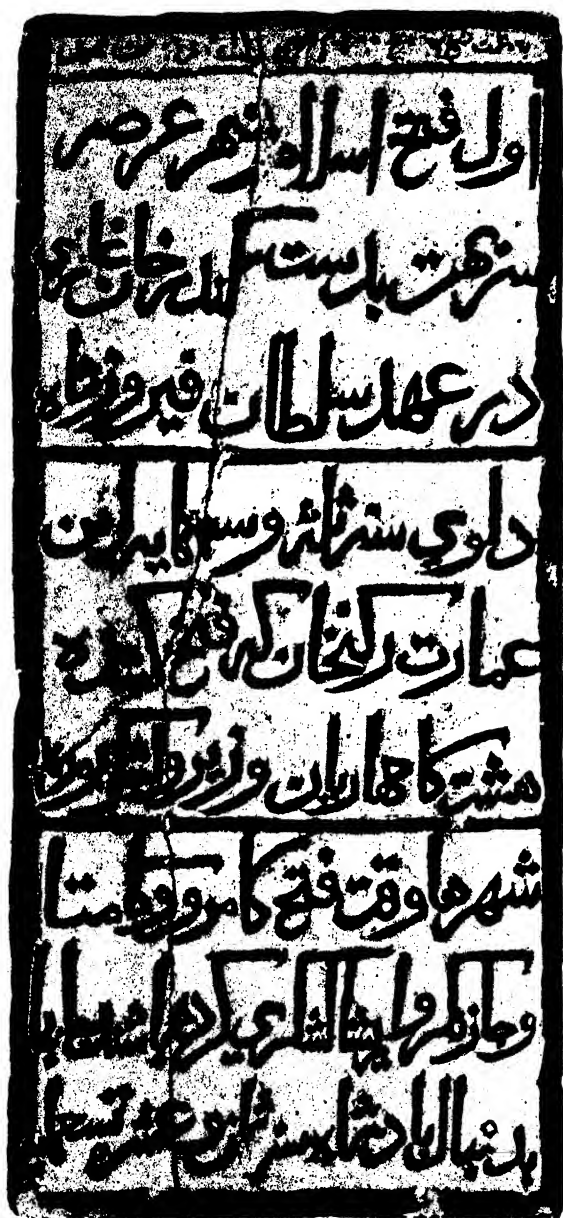 اول فتح اسلام شهر عرصه
سریهت بدست سکندر خان غازی
در عهد سلطان فیروز شاه
دلوی سنه ثلث و سبعمایه این
عمارت رکنخان که فتح کننده
هشت کامهاریان وزیر و لشکر بوده
شهرها وقت فتح کامرو و کامتا
و جازنگر و اریشا لشکری کرده باشند جابجا
بدنبال پادشاه سنه ثمان و عشر تسعمایه